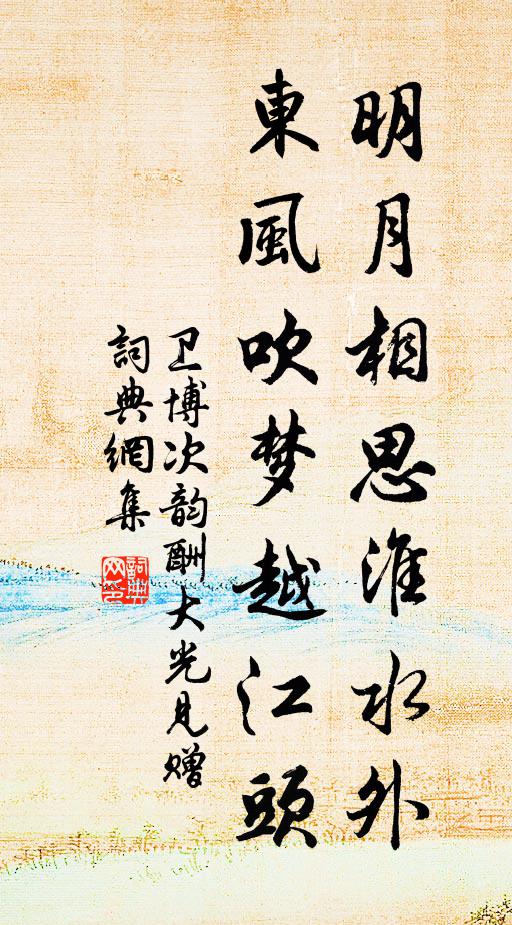 明月相思淮水外
東風吹梦越江頭
卫博次韵酬大光見赠
詞典網集
詞典網印